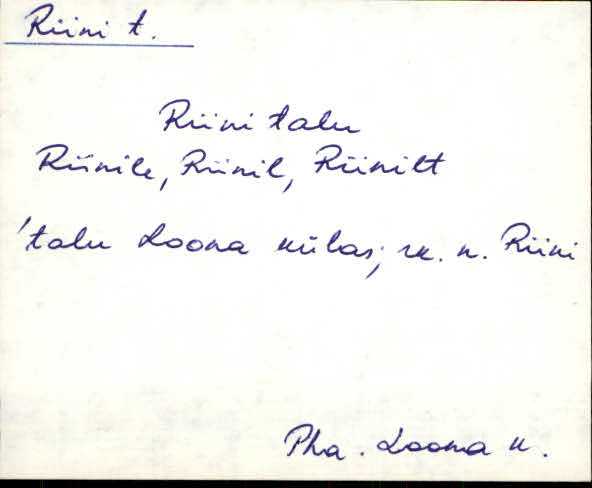 Riini t.
Riini talu
Riinile, Riinil, Riinilt
'talu Loona külas; rk. n. Riini
Pha. Loona k.